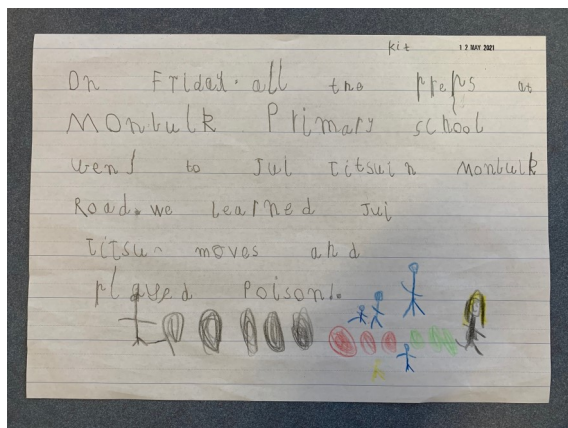 kit 12 MAY 2021
On Friday. all the preps at
Monbulk Primary school
wens to Jul Titsu in Monbulk
Road. we learned Jui
Titsu moves and
played Poison.